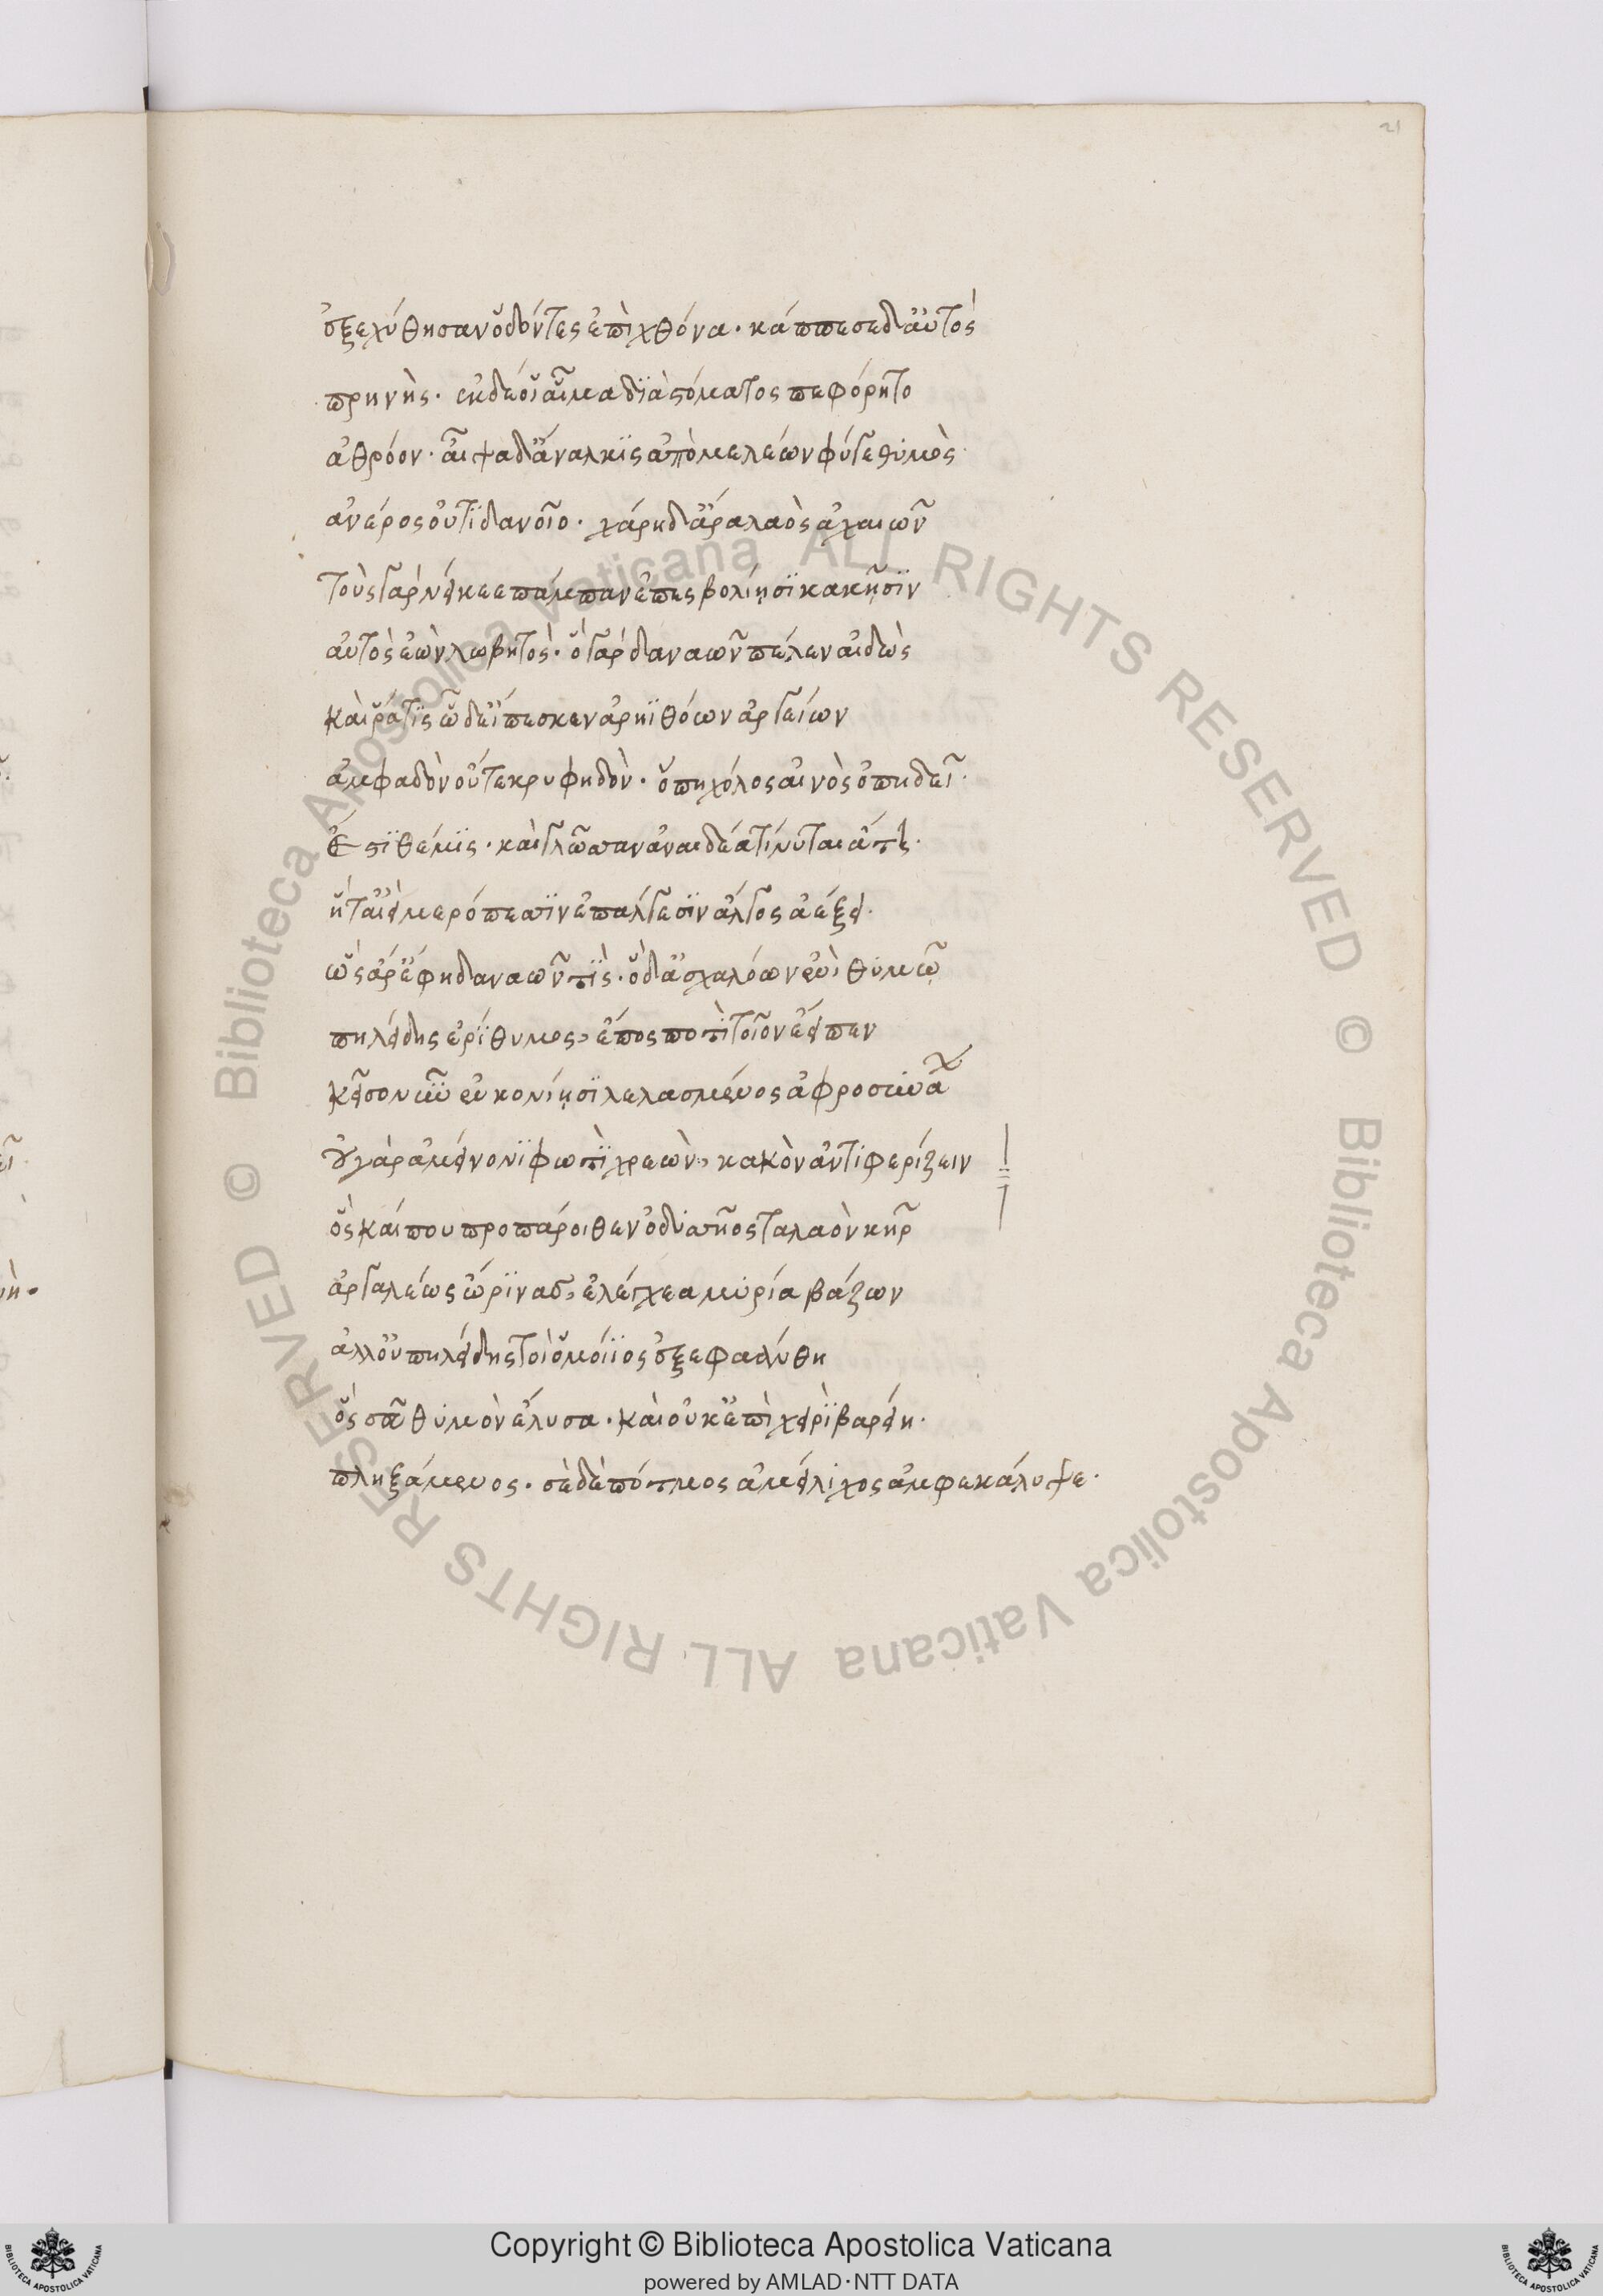 21
ἐξεχύθησαν ὀδόντες ἐπὶ χθόνα· κάππεσε δ' αὐτὸς
πρηνής· ἐκ δέ οἱ αἷμα διὰ στόματος πεφόρητο
ἀθρόον· αἶψα δ' ἄναλκις ἀπὸ μελέων φύγε θυμὸς
ἀνέρος οὐτιδανοῖο· χάρη δ' ἄρα λαὸς ἀχαιῶν
τοὺς γὰρ νείκεε πάμπαν ἐπεσβολίῃσι κακῇσιν
αὐτὸς ἐὼν λωβητός· ὁ γὰρ δαναῶν πέλεν αἰδὼς
καί ῥά τις ὧδ' εἴπεσκεν ἀρηϊθόων ἀργείων
ἀμφαδὸν οὔτε κρυφηδὸν· ὅπη χόλος αἰνὸς ὀπηδεῖ·
ἔστι θέμις· καὶ γλῶσσαν ἀναιδέα τίνυται ἄτη·
ἥτ' αἰεὶ μερόπεσσιν ἐπ' ἄλγεσιν ἄλγος ἀέξει·
ὣς ἄρ' ἔφη δαναῶν τις· ὁ δ' ἀσχαλόων ἐνὶ θυμῷ
πηλείδης ἐρίθυμος, ἔπος ποτὶ τοῖον ἔειπεν
κεῖσό νυν ἐν κονίῃσι λελασμένος ἀφροσυνάων
οὐ γὰρ ἀμείνονι φωτὶ χρεὼν, κακὸν ἀντιφερίζειν
ὃς καί που προπάροιθεν ὀδυσσῆος ταλαὸν κῆρ
ἀργαλέως ὤρινας, ἐλέγχεα μυρία βάζων
ἀλλ' οὐ πηλείδης τοι ὁμοίϊος ἐξεφαάνθη
ὅς σευ θυμὸν ἔλυσα· καὶ οὐκ ἐπὶ χειρὶ βαρείῃ·
πληξάμενος· σὲ δὲ πότμος ἀμείλιχος ἀμφεκάλυψε·
Copyright © Biblioteca Apostolica Vaticana
powered by AMLAD·NTT DATA
© Biblioteca Apostolica Vaticana ALL RIGHTS RESERVED © Biblioteca Apostolica Vaticana ALL RIGHTS RESERVED